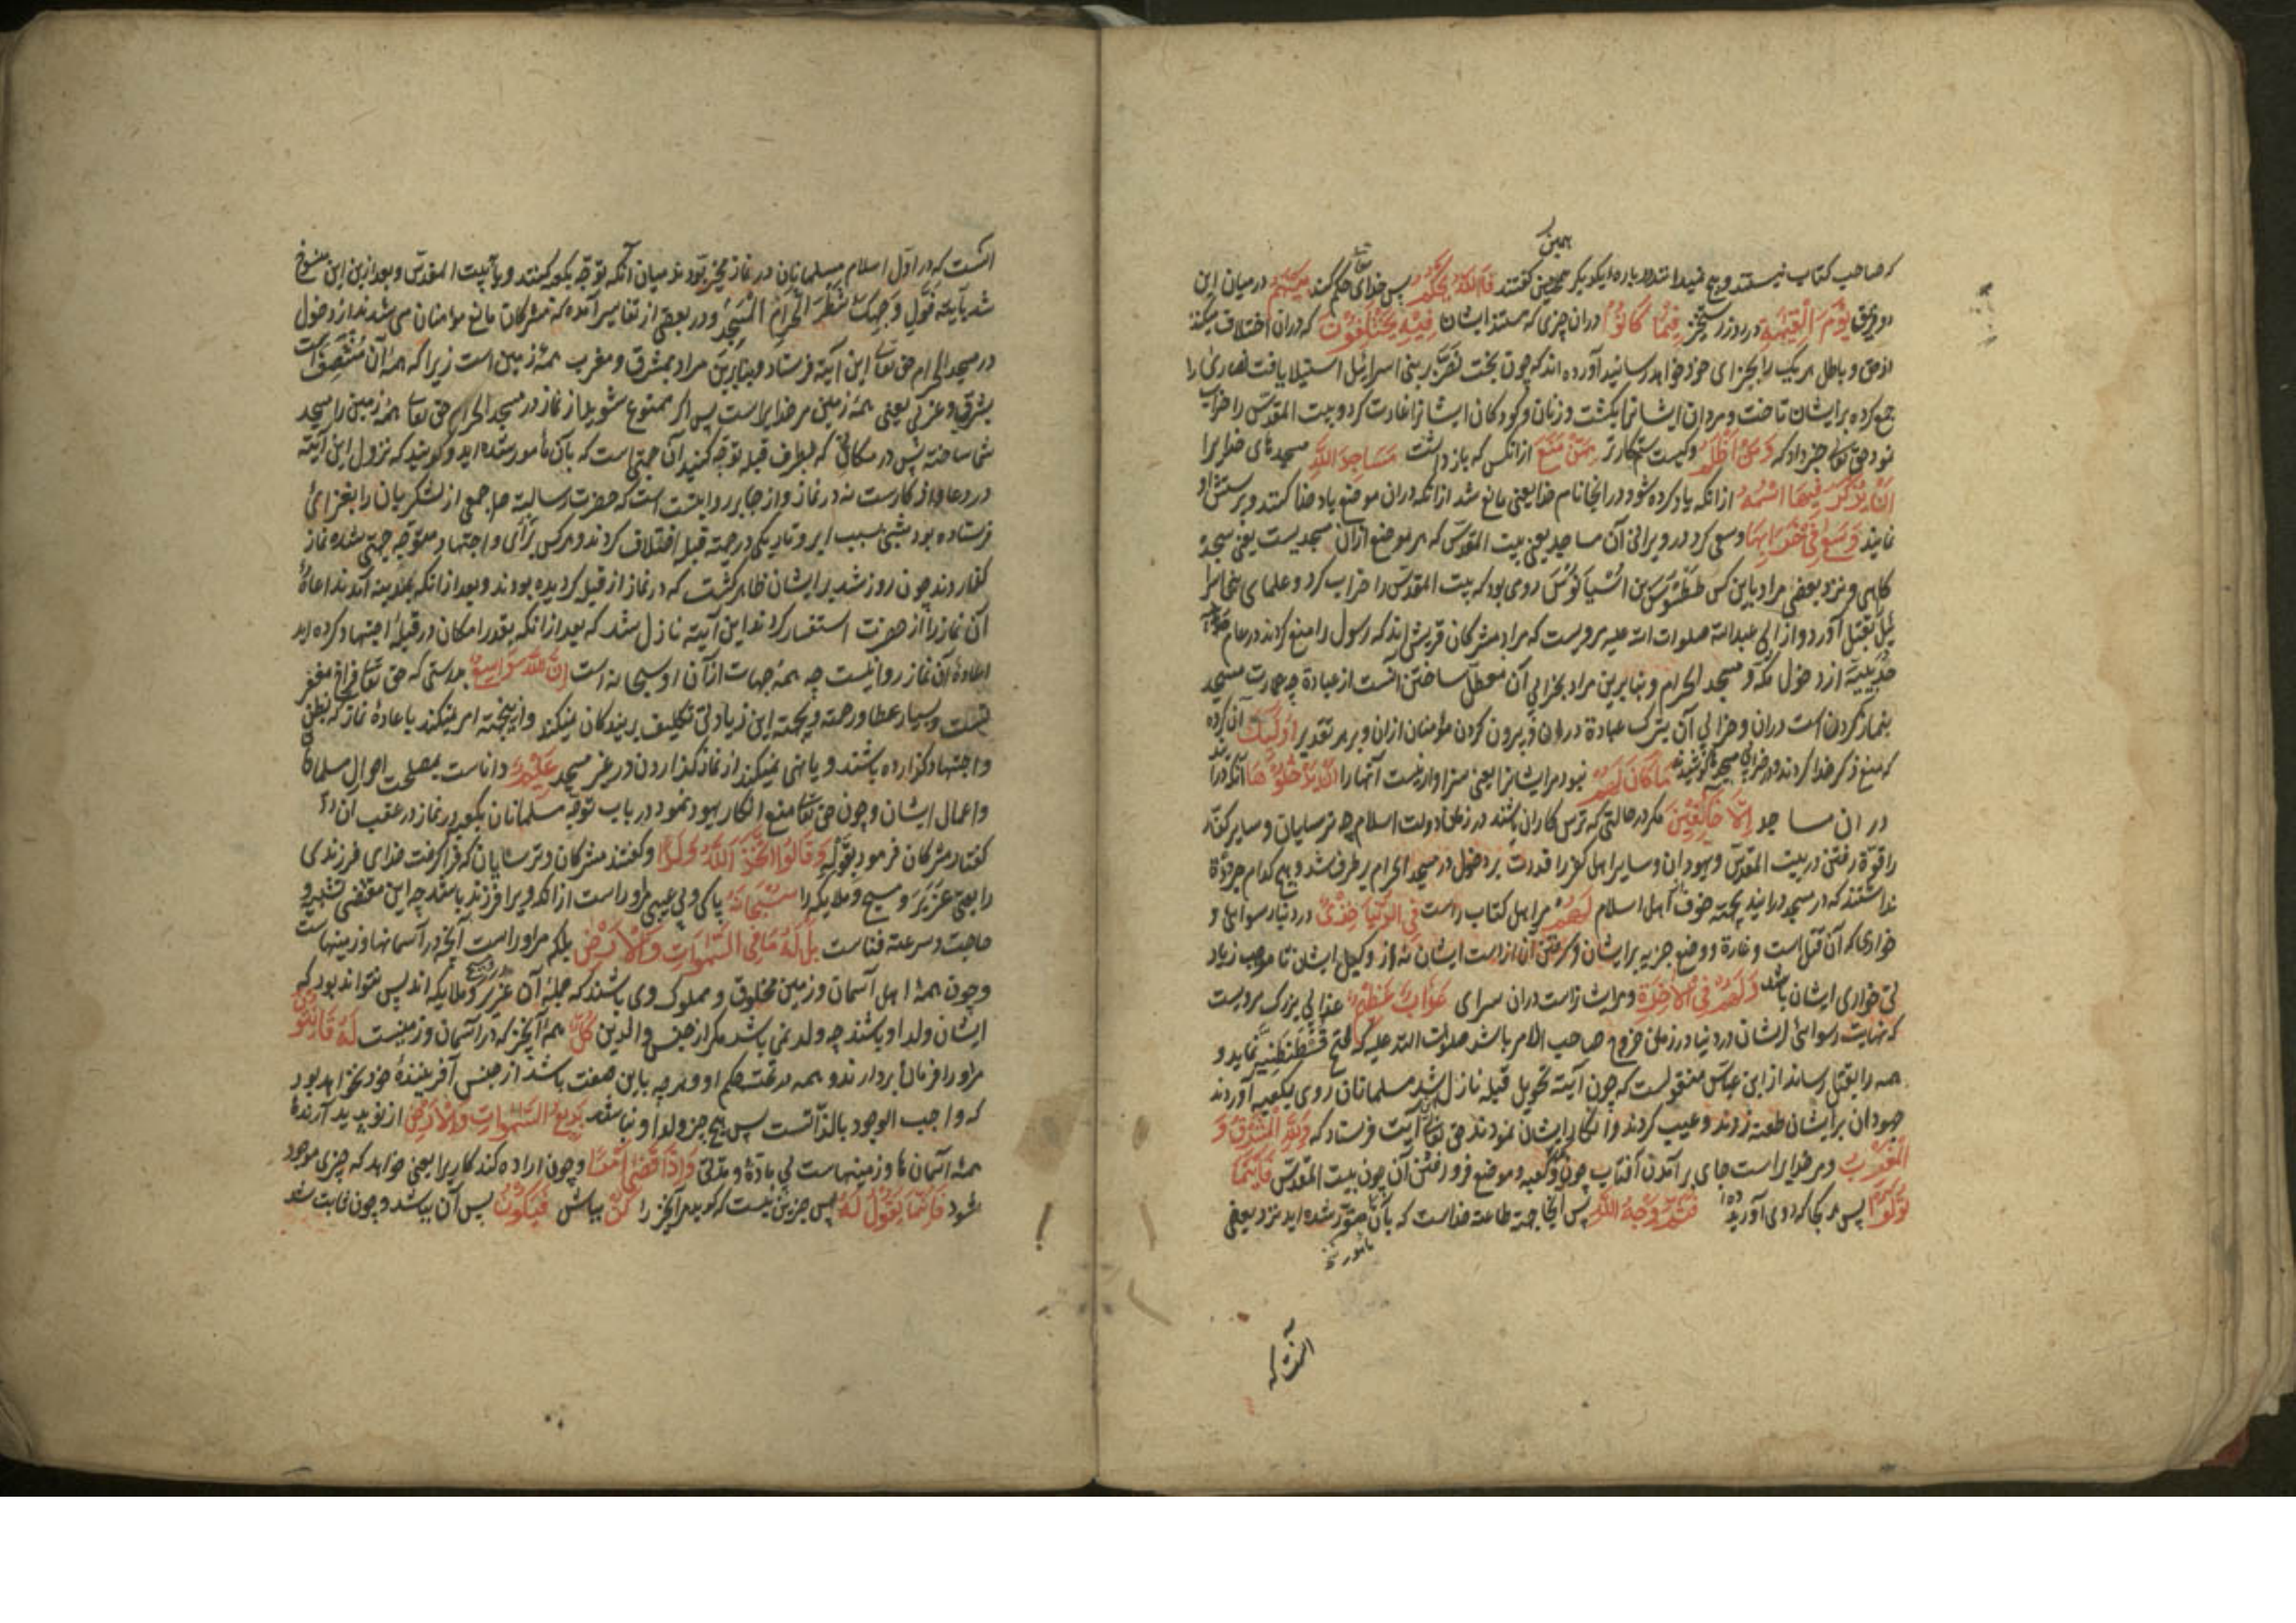 همین
که صاحب کتاب نیستند و هیچ نمیدانند درباره یکدیگر همچنین گفتند فَاللّٰهُ یَحْکُمُ پس خدای تعا حکم کند بَیْنَهُمْ در میان این
دو فریق یَوْمَ الْقِیٰمَةِ در روز رستخیز فِیْمَا کَانُوْا در ان چیزی که هستند ایشان فِیْهِ یَخْتَلِفُوْنَ که در ان اختلاف میکنند
از حق و باطل هر یک را بجزای خود خواهد رسانید آورده اند که چون بخت نصر بر بنی اسرائیل استیلا یافت نصاری را
جمع کرده برایشان تاخت و مردان ایشانرا بکشت و زنان و کودکان ایشانرا غارت کرد و بیت المقدس را خراب
نمود حق تعا خبر داد که وَمَنْ اَظْلَمُ و کیست ستمکارتر مِمَّنْ مَنَعَ از انکس که بازداشت مَسَاجِدَ اللّٰهِ مسجدهای خدایرا
اَنْ یُذْکَرَ فِیْهَا اسْمُهُ از انکه یاد کرده شود در انجا نام خدا یعنی مانع شد از انکه در ان موضع یاد خدا کنند و پرستش او
نمایند وَسَعٰی فِیْ خَرَابِهَا و سعی کرد در ویرانی آن مساجد یعنی بیت المقدس که هر موضع از ان مسجدیست یعنی سجده
کاهی و نزد بعضی مراد باین کس طَطُوس بن اسیانوس رومی بود که بیت المقدس را خراب کرد و علمای بنی اسرا
ئیل را بقتل آورد و از ابی عبدالله صلوات الله علیه مرویست که مراد مشرکان قریش اند که رسول را منع کردند در عام
حدیبیه از دخول مکه و مسجد الحرام و بنابرین مراد بخرابی آن معطل ساختن آنست از عبادة چه عمارت مسجد
بنماز کردن است دران و خرابی آن بترک عبادة دران و بیرون کردن مؤمنان ازان و بر هر تقدیر اُولٰئِکَ ان کرده
که منع ذکر خدا کردند و در خرابی مسجد کوشیدند مَا کَانَ لَهُمْ نبود مر ایشانرا یعنی سزاوار نیست آنها را اَنْ یَدْخُلُوْهَا آنکه در آیند
در ان مساجد اِلَّا خَائِفِیْنَ مکر در حالتی که ترس کاران باشند در زمان دولت اسلام چه ترسایان و سایر کفار
را قوة رفتن در بیت المقدس و یهودان و سایر اهل کفر را قدرت بر دخول در مسجد الحرام برطرف شد و هیچ کدام جرأة
نداشتند که در مسجد درایند بجهته خوف از اهل اسلام لَهُمْ مر اهل کتاب راست فِی الدُّنْیَا خِزْیٌ در دنیا رسوائی و
خواری که آن قتل است و غارة و وضع جزیه بر ایشان و گرفتن آن از دست ایشان نه از وکیل ایشان تا موجب زیاد
تی خواری ایشان باشد وَلَهُمْ فِی الْاٰخِرَةِ و مر ایشانراست در ان سرای عَذَابٌ عَظِیْمٌ عذابی بزرک مرویست
که نهایت رسوائی ایشان در دنیا در زمان خروج صاحب الامر باشد صلوات الله علیه که فتح قسطنطنیه نماید و
همه را بقتل رساند از ابن عباس منقولست که چون آیته تحویل قبله نازل شد مسلمانان روی بکعبه آوردند
جهودان برایشان طعنه زدند و عیب کردند و انکار ایشان نمودند حق تعا این آیت فرستاد که وَلِلّٰهِ الْمَشْرِقُ وَ
الْمَغْرِبُ و مر خدایراست جای برآمدن آفتاب چون کعبه و موضع فرو رفتن آن چون بیت المقدس فَاَیْنَمَا
تُوَلُّوْا پس هر کجا که روی آورید فَثَمَّ وَجْهُ اللّٰهِ پس انجا جهته طاعته خداست که بآن مأمور شده اید نزد بعضی
آنست که
انست که در اول اسلام مسلمانان در نماز مخیر بودند میان آنکه توجه بکعبه کنند و یا بیت المقدس و بعد ازین این منسوخ
شد بآیته فَوَلِّ وَجْهَکَ شَطْرَ الْمَسْجِدِ الْحَرَامِ و در بعضی از تفاسیر آمده که مشرکان مانع مؤمنان می شدند از دخول
در مسجد الحرام حق تعا این آیته فرستاد و بنابرین مراد بمشرق و مغرب همه زمین است زیرا که همه آن منتصف است
بشرقی و غربی یعنی همه زمین مر خدایراست پس اکر ممنوع شوید از نماز در مسجد الحرام حق تعا همه زمین را مسجد
شما ساخته پس در هر مکانی که بطرف قبله توجه کنید آن جهتی است که بآن مأمور شده اید و کویند که نزول این آیته
در دعا و اذکارست نه در نماز و از جابر روایتست که حضرت رسالت صلعم جمعی از لشکریان را بغزائی
فرستاده بود شبی بسبب ابر و تاریکی در جهته قبله اختلاف کردند و هر کس برأی و اجتهاد متوجه جهتی شده نماز
گذاردند چون روز شد بر ایشان ظاهر کشت که در نماز از قبله کردیده بودند و بعد از انکه بمدینه آمدند اعاده
آن نماز را از حضرت استفسار کردند این آیته نازل شد که بعد از انکه بقدر امکان در قبله اجتهاد کرده اید
اعاده آن نماز روا نیست چه همه جهات از آن او سبحانه است اِنَّ اللّٰهَ وَاسِعٌ بدرستی که حق تعا فراخ مغفر
تست و بسیار عطا و رحمة و بجهته این زیادتی تکلیف بر بندکان نمیکند و ازینجهته امر نمیکند باعاده نماز که بظن
و اجتهاد کزارده باشند و یا نهی نمیکند از نماز کذاردن در غیر مسجد عَلِیْمٌ داناست بمصلحت احوال مسلمانان
و اعمال ایشان و چون حق تعا منع انکار یهود نمود در باب توجه مسلمانان بکعبه در نماز در عقب آن رد
کفتار مشرکان فرمود بقوله وَقَالُوا اتَّخَذَ اللّٰهُ وَلَدًا و کفتند مشرکان و ترسایان که فرا کرفت خدای فرزندی
را یعنی عزیر و مسیح و ملایکه را سُبْحَانَهُ پاکی و بی عیبی مر او راست از انکه ویرا فرزند باشد چه این مقتضی تشبیه و
حاجت و سرعته فناست بَلْ لَهُ مَا فِی السَّمٰوَاتِ وَالْاَرْضِ بلکه مر او راست آنچه در آسمانها و زمینهاست
و چون همه اهل آسمان و زمین مخلوق و مملوک وی باشند که جمله آن عزیر و مسیح و ملایکه اند پس نتواند بود که
ایشان ولد او باشند چه ولد نمی باشد مکر از جنس والدین کُلٌّ همه آنچیز که در آسمان و زمینست لَهُ قَانِتُوْنَ
مر او را فرمان بردارند و همه در تحت حکم او و هر چه باین صفت باشد از جنس آفریننده خود نخواهد بود
که واجب الوجود بالذاتست پس هیچ چیز ولد او نباشد بَدِیْعُ السَّمٰوَاتِ وَالْاَرْضِ از نو پدید آرنده
همه آسمان ها و زمینهاست بی مادة و مدتی وَاِذَا قَضٰی اَمْرًا و چون اراده کند کاریرا یعنی خواهد که چیزی موجود
شود فَاِنَّمَا یَقُوْلُ لَهُ پس جزین نیست که کوید مر آنچیز را کُنْ بباش فَیَکُوْنُ پس آن بباشد و چون ثابت شد